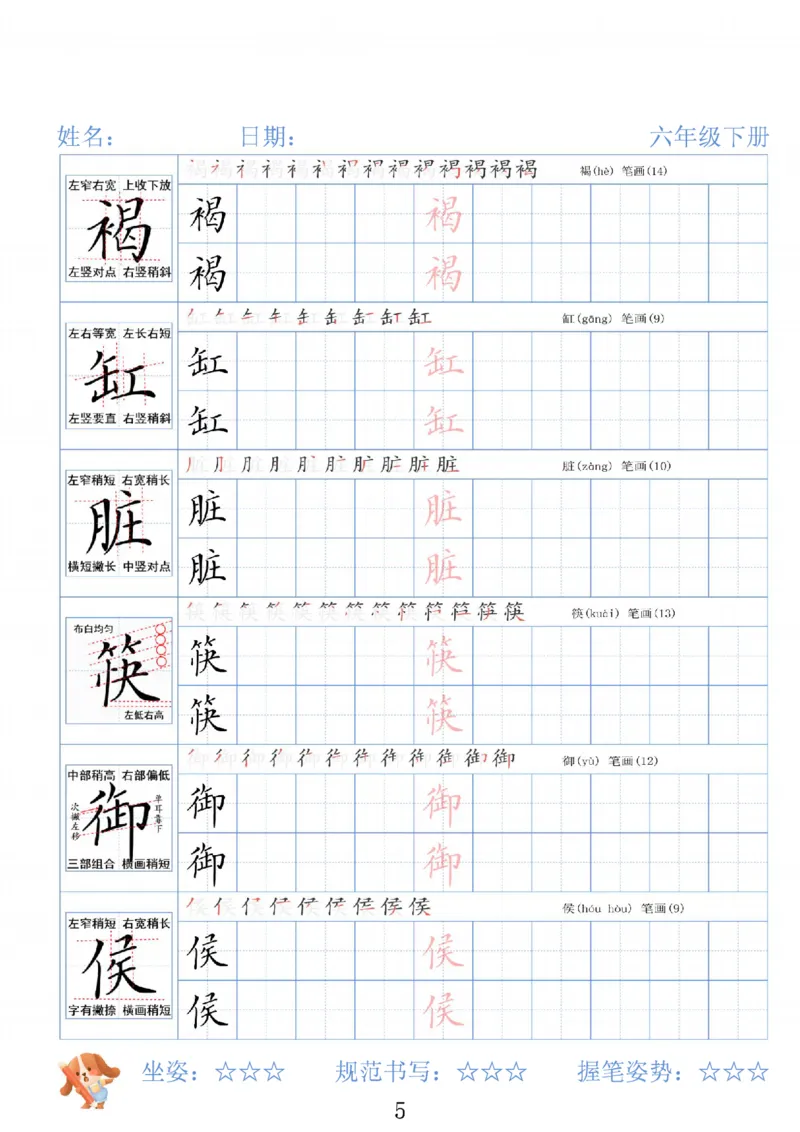 姓名： 日期： 六年级下册
褐(hè) 笔画(14)
左窄右宽 上收下放
褐
左竖对点 右竖稍斜
褐 褐
褐 褐
缸(gāng) 笔画(9)
左右等宽 左长右短
缸
左竖要直 右竖稍斜
缸 缸
缸 缸
脏(zàng) 笔画(10)
左窄稍短 右宽稍长
脏
横短撇长 中竖对点
脏 脏
脏 脏
筷(kuài) 笔画(13)
布白均匀
筷
左低右高
筷 筷
筷 筷
御(yù) 笔画(12)
中部稍高 右部偏低
次撇左移
御
单耳靠下
三部组合 横画稍短
御 御
御 御
侯(hóu hòu) 笔画(9)
左窄稍短 右宽稍长
侯
字有撇捺 横画稍短
侯 侯
侯 侯
坐姿：☆☆☆ 规范书写：☆☆☆ 握笔姿势：☆☆☆
5